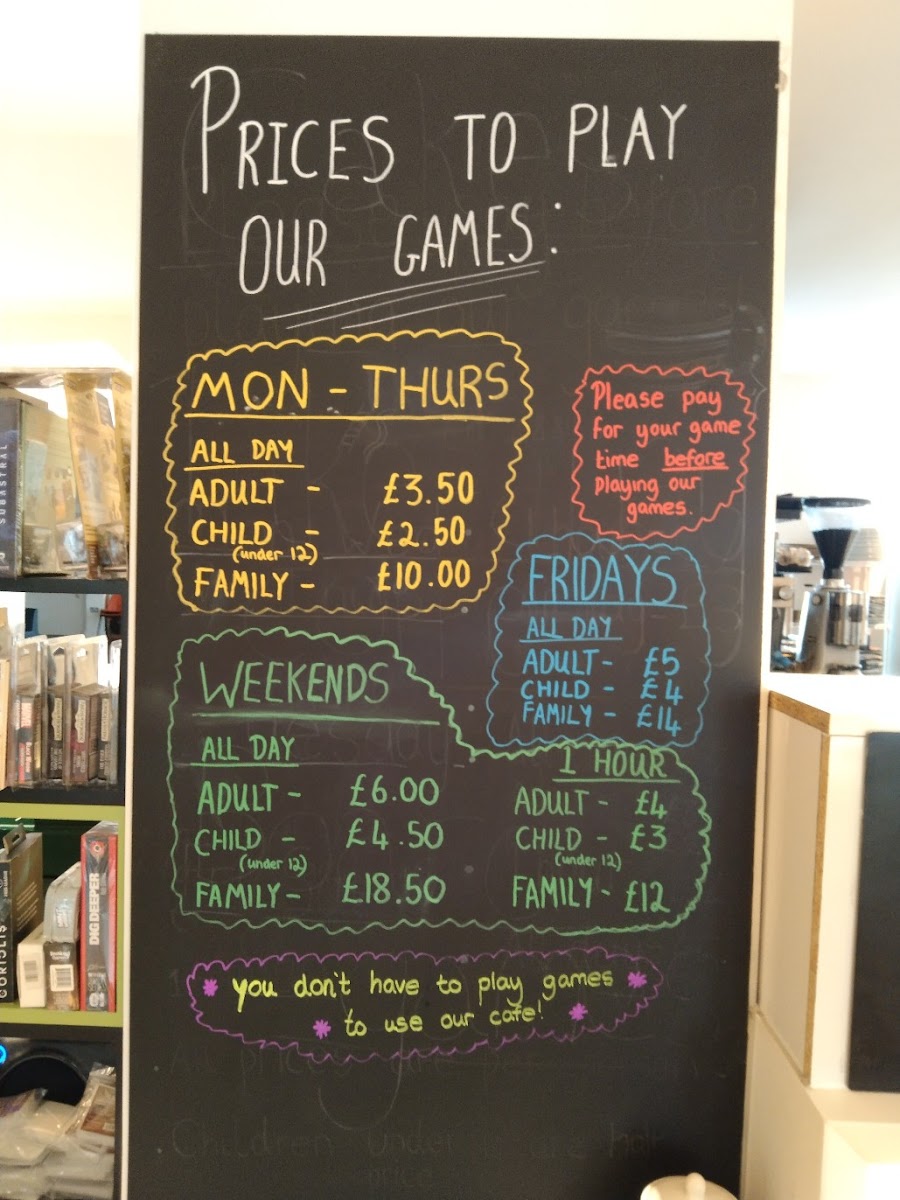 PRICES TO PLAY
OUR GAMES:
MON - THURS
ALL DAY
ADULT - £3.50
CHILD - £2.50
(under 12)
FAMILY - £10.00
Please pay
for your game
time before
playing our
games.
FRIDAYS
ALL DAY
ADULT - £5
CHILD - £4
FAMILY - £14
WEEKENDS
ALL DAY
ADULT - £6.00
CHILD - £4.50
(under 12)
FAMILY - £18.50
1 HOUR
ADULT - £4
CHILD - £3
(under 12)
FAMILY - £12
you don't have to play games
to use our cafe!
SUBASTRAL
DIG DEEPER
CORIOLIS